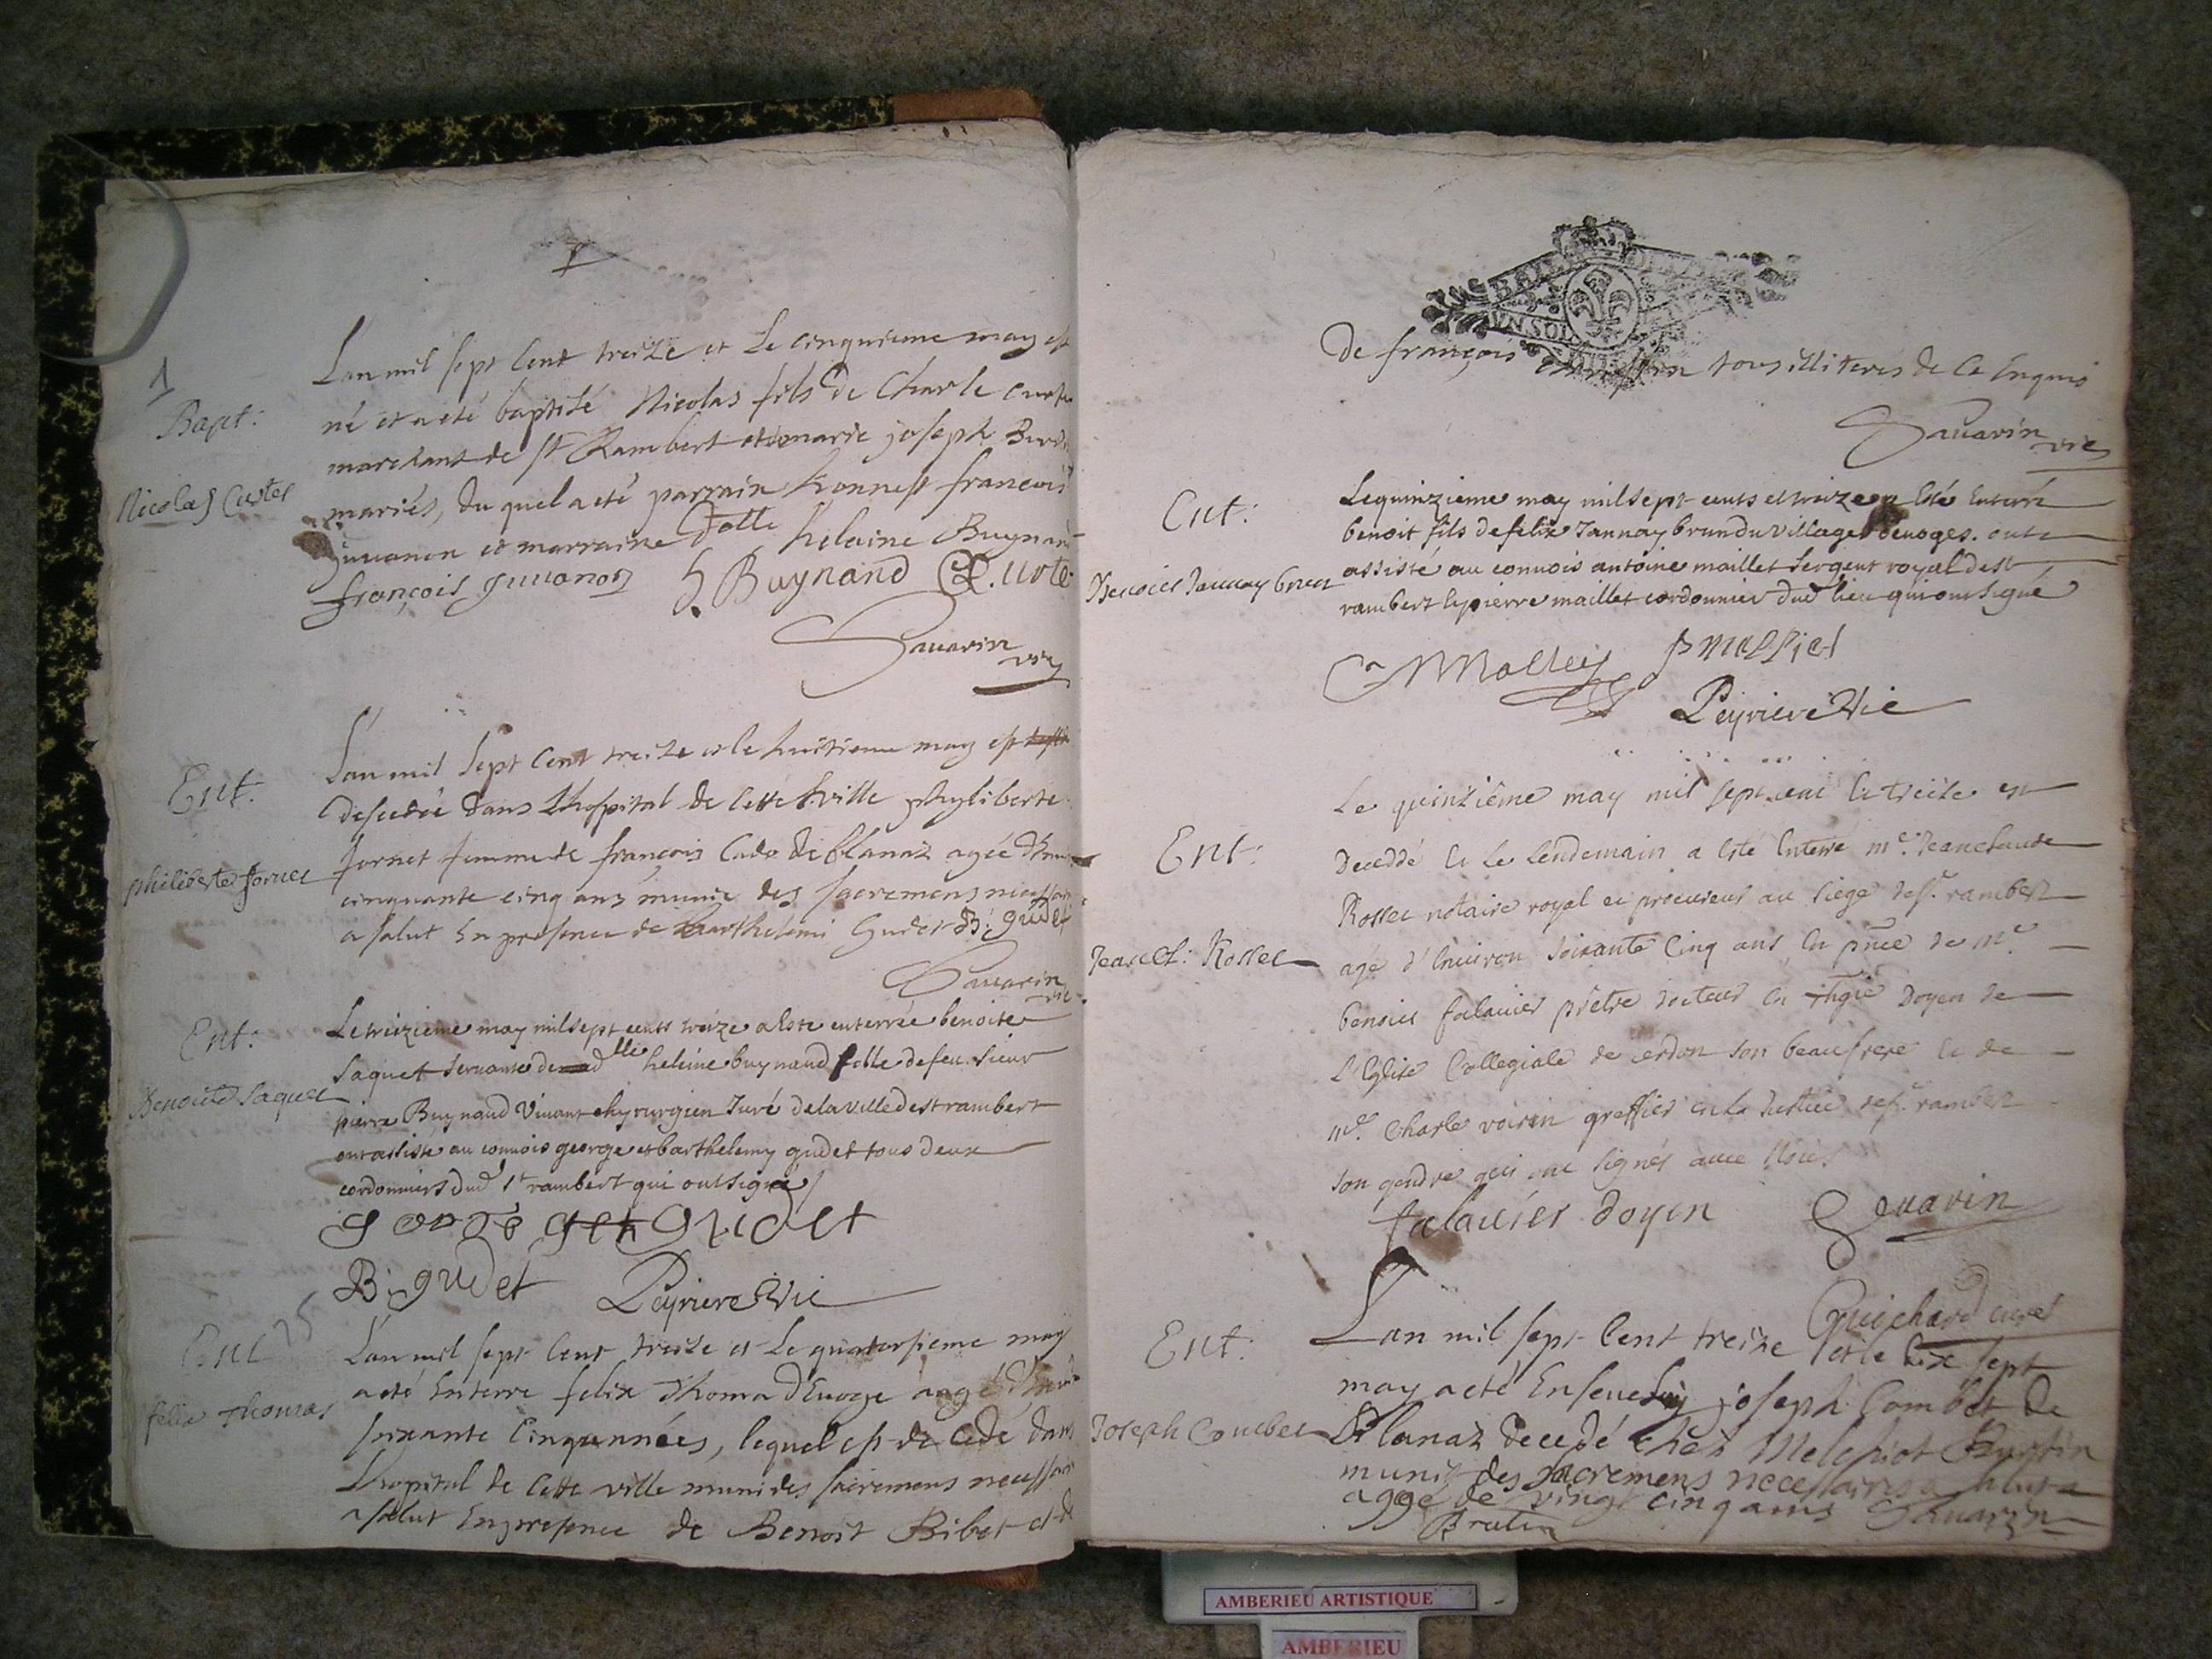 1
Bapt:
Nicolas Custer
L'an mil sept Cent treize et Le cinquieme may est
né et a eté baptisé Nicolas fils de Charle
marchant de st Rambert et marie joseph
mariés, du quel a eté parrain honneste francois
Juuanon et marraine Dlle helaine Buynand
françois Juuanon h Buynand
Sauarin vic
Ent:
philiberte fornet
L'an mil sept Cent treize et le huitieme may est
decedée dans Lhospital de Cette ville phyliberte
fornet femme de françois Cado de blanaz agée d'enui
cinquante cinq ans munie des sacremens necessai
a salut en presence de Barthelemi Gudet B: gudet
Sauarin vic
Ent:
Benoite Saquet
Le treizieme may mil sept cents treize a este enterrée benoite
Saquet seruante de mad lle heleine buynand fille de feu sieur
pierre Buynand Viuant chyrurgien Juré de la ville de st rambert
ont assisté au conuois george et barthelemy gudet tous deux
cordonniers dud st rambert qui ont signé
gorge gudet
B: gudet Peyriere Vic
Ent 25
felix Thomas
L'an mil sept Cent treize et Le quatorsieme may
a eté Enterre felix Thoma d'Euoge aagé d'enui
soixante Cinq années, lequel est decedé dans
Lhopital de Cette ville muni des sacremens necessair
a salut En presence de Benoit Bibet et d
VN SOL
De françois tous illiteres de Ce Enquis
Sauarin vic
Ent:
Benoict Jannay brun
Le quinzieme may mil sept cents et treize a Esté Enterré
benoit fils de felix Jannay brun du Village d'euoges. ont
assisté au conuois antoine maillet sergent royal de st
rambert Et pierre maillet cordonnier dud lieu qui ont signé
P Malliet
Peyriere Vic
Ent:
Jean Cl: Rosset
Le quinzième may mil sept cent et treize est
Deceddé et Le lendemain a Esté Enterré me. Jean claude
Rosset notaire royal et procureur au siege de st. rambert
agé d'Enuiron soixante Cinq ans En pnce de me.
benoict falauier prêtre docteur En Doyen de
L'Eglise Collegiale de cerdon son beaufrere et de
me. Charle voisin greffier en la Justice de st. rambert
son gendre qui ont signés auec Nous
falauier doyen Sauarin
Guichard curé
Ent:
Joseph Combet
L'an mil sept Cent treize et le dix sept
may a eté Enseuely joseph Combet de
Blanaz decedé chés Melchiot
munis des sacremens necessaires a salut
aggé de vingt cinq ans Sauarin
AMBERIEU ARTISTIQUE
AMBERIEU